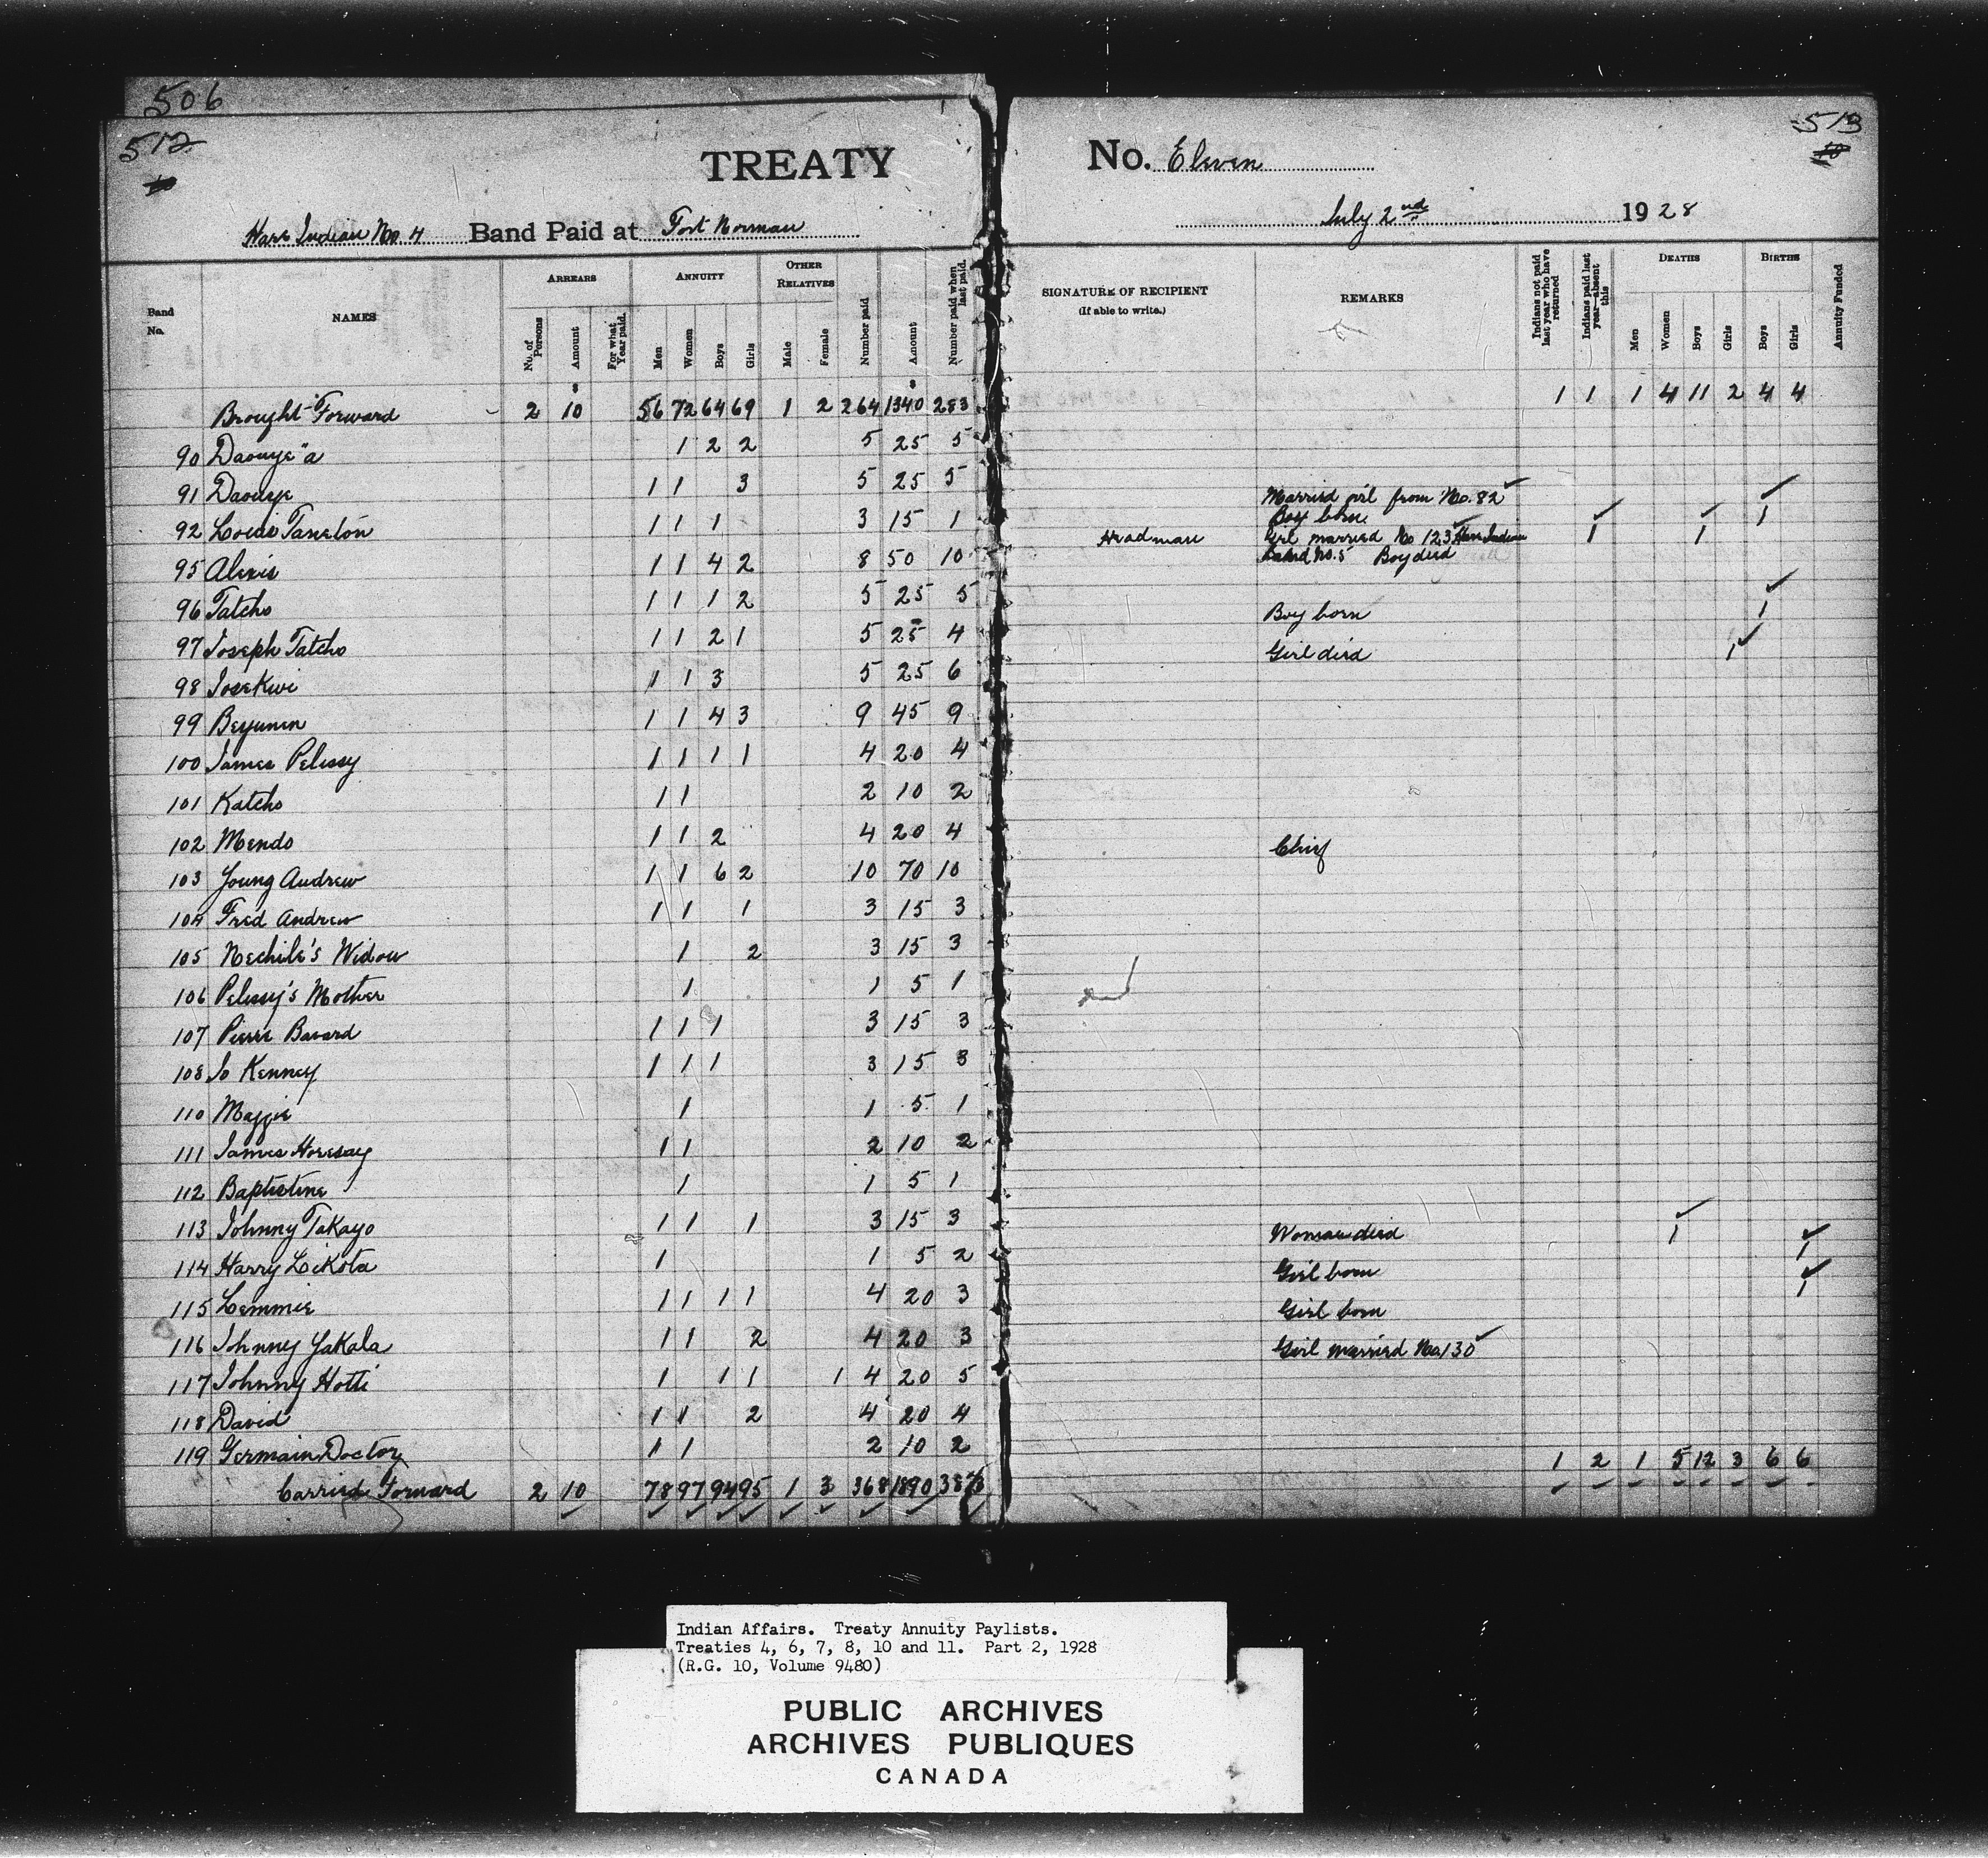 506
512
513
TREATY No. Eleven
Hare Indian No. 4 Band Paid at Fort Norman July 2nd 1928
Band No. NAMES ARREARS ANNUITY OTHER RELATIVES Number paid Amount Number paid when last paid. SIGNATURE OF RECIPIENT (If able to write.) REMARKS Indians not paid last year who have returned Indians paid last year—absent this DEATHS BIRTHS Annuity Funded
No. of Persons Amount For what Year paid. Men Women Boys Girls Male Female Men Women Boys Girls Boys Girls
Brought Forward 2 10 56 72 64 69 1 2 264 1340 283 1 1 1 4 11 2 4 4
90 Daouye "a 1 2 2 5 25 5
91 Daouye 1 1 3 5 25 5
92 Louis Taneton 1 1 1 3 15 1 Married girl from No. 82 Boy born 1
95 Alexis 1 1 4 2 8 50 10 Headman Girl married No 123 Hare Indian Band No. 5 Boy died 1 1
96 Tatcho 1 1 1 2 5 25 5 Boy born 1
97 Joseph Tatcho 1 1 2 1 5 25 4 Girl died 1
98 Josekwi 1 1 3 5 25 6
99 Beyunen 1 1 4 3 9 45 9
100 James Pelissy 1 1 1 1 4 20 4
101 Katcho 1 1 2 10 2
102 Mendo 1 1 2 4 20 4 Chief
103 Young Andrew 1 1 6 2 10 70 10
104 Fred Andrew 1 1 1 3 15 3
105 Nechile's Widow 1 2 3 15 3
106 Pelissy's Mother 1 1 5 1
107 Pierre Bavard 1 1 1 3 15 3
108 Jo Kenney 1 1 1 3 15 3
110 Maggie 1 1 5 1
111 James Horesay 1 1 2 10 2
112 Baptistine 1 1 5 1
113 Johnny Takayo 1 1 1 3 15 3
114 Harry Likota 1 1 5 2 Woman died 1
115 Lemmie 1 1 1 1 4 20 3 Girl born 1
116 Johnny Yakala 1 1 2 4 20 3 Girl born 1
117 Johnny Hotti 1 1 1 1 4 20 5 Girl married No. 130
118 David 1 1 2 4 20 4
119 Germain Doctor 1 1 2 10 2
Carried Forward 2 10 78 97 94 95 1 3 368 1890 1 2 1 5 12 3 6 6
Indian Affairs. Treaty Annuity Paylists.
Treaties 4, 6, 7, 8, 10 and 11. Part 2, 1928
(R.G. 10, Volume 9480)
PUBLIC ARCHIVES
ARCHIVES PUBLIQUES
CANADA